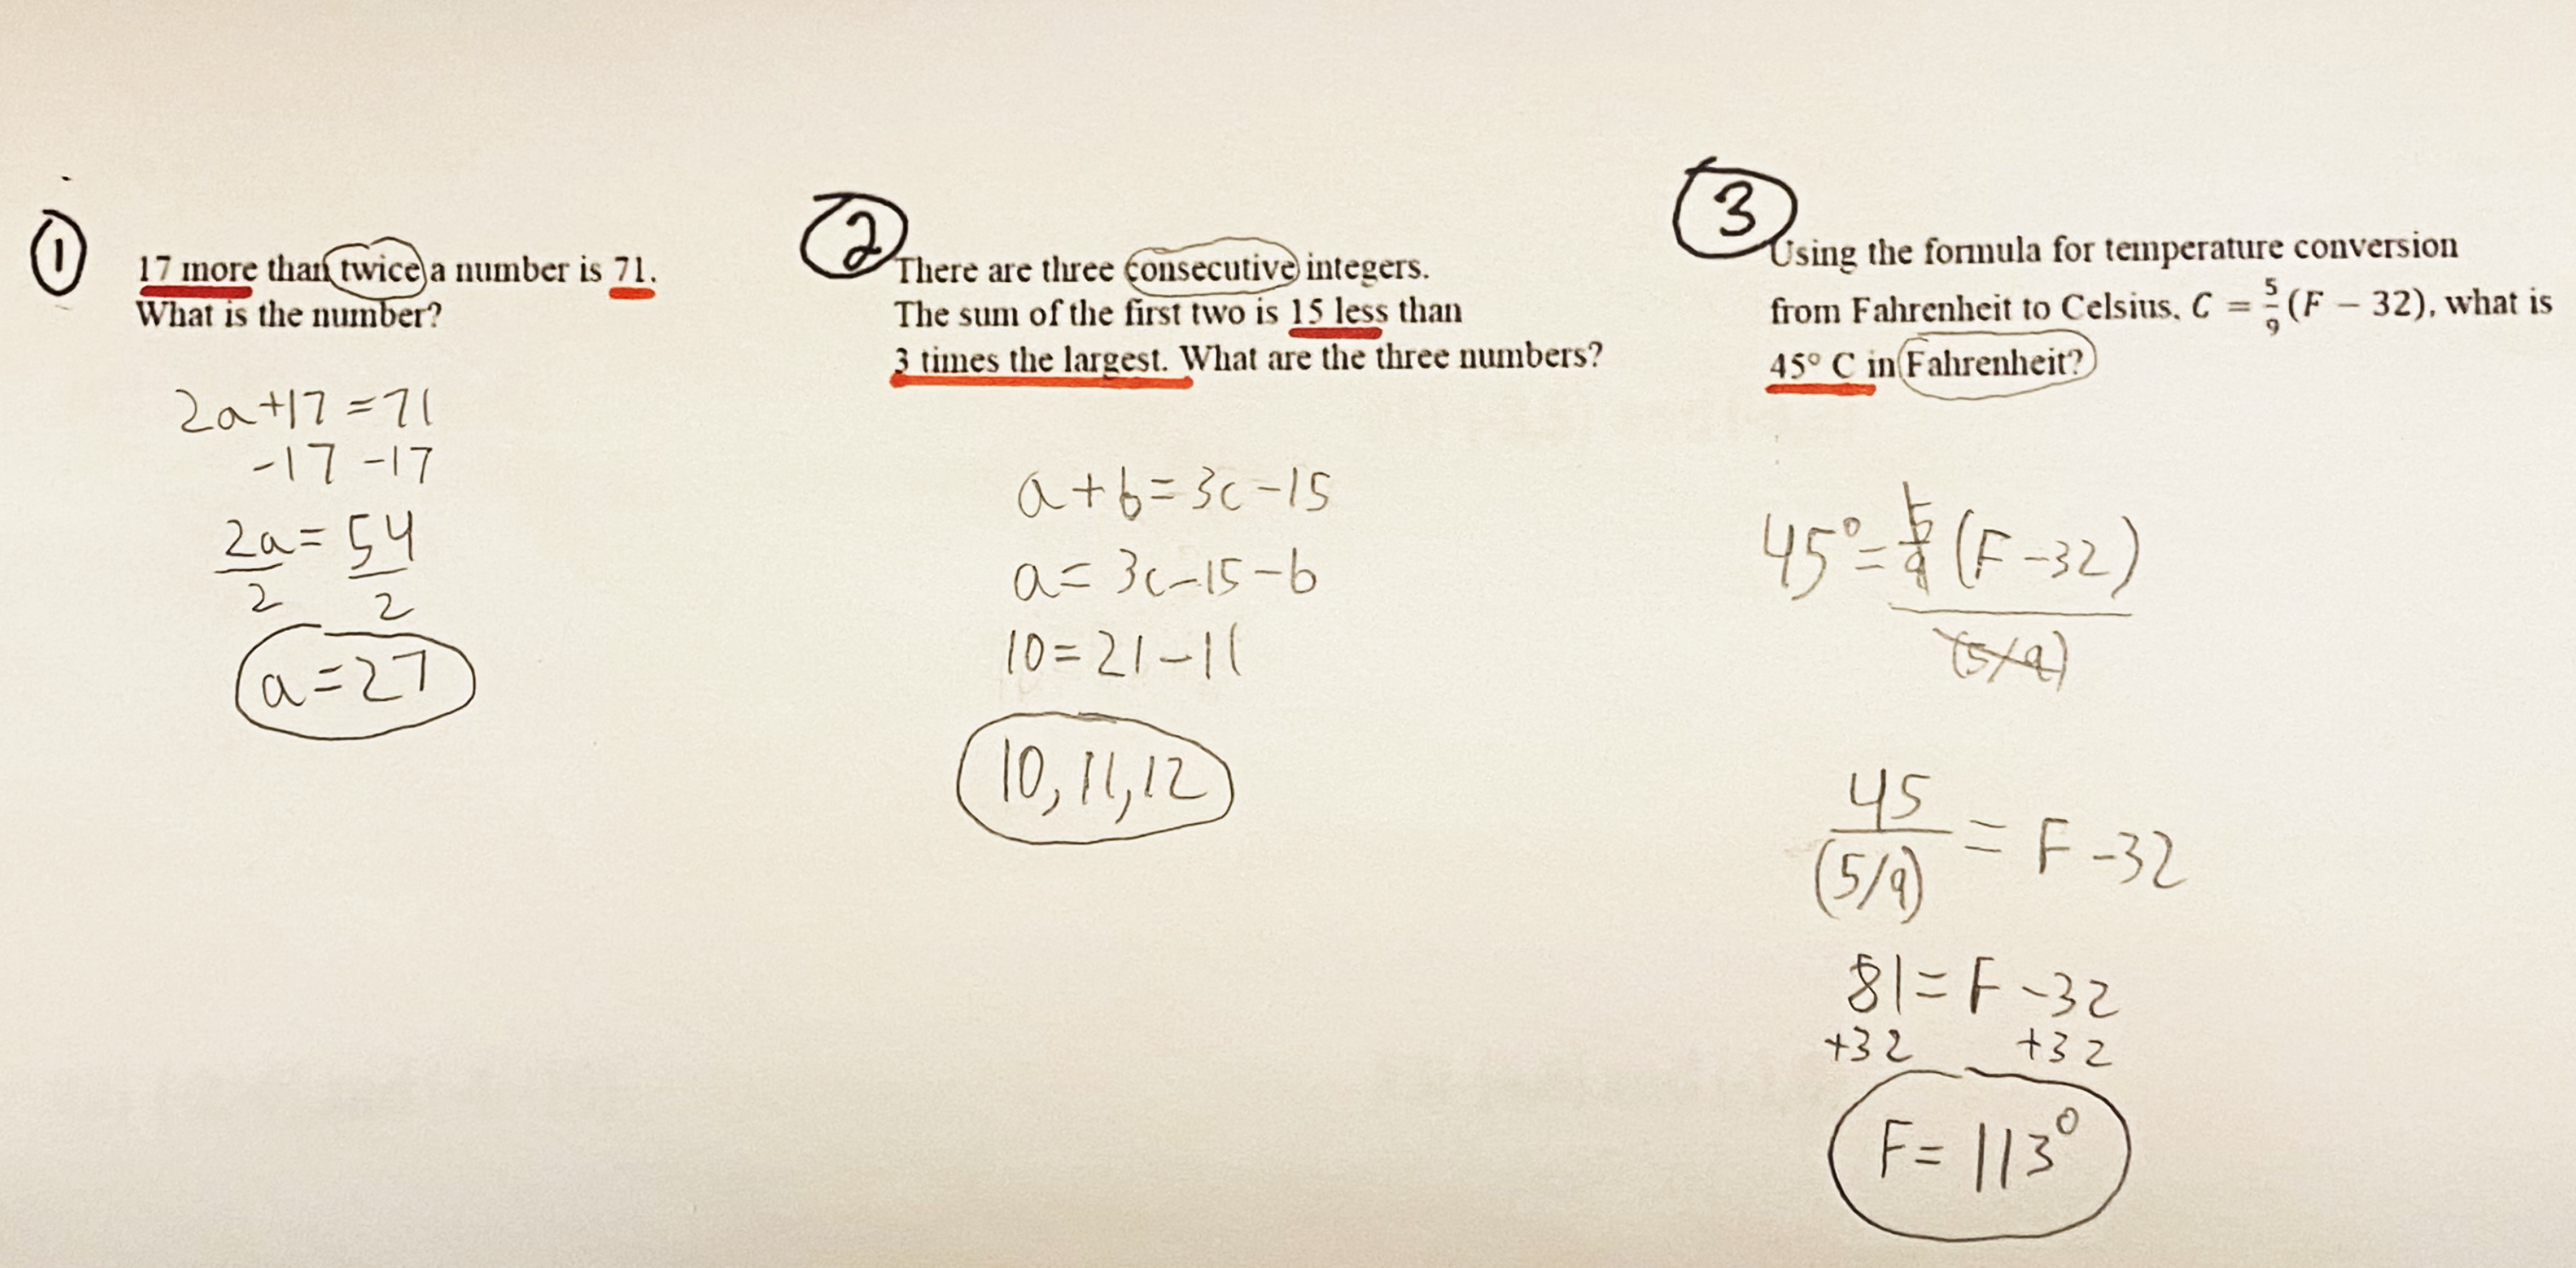 ①
17 more than twice a number is 71.
What is the number?
2a+17=71
-17 -17
2a = 54
2 2
a=27
②
There are three consecutive integers.
The sum of the first two is 15 less than
3 times the largest. What are the three numbers?
a+b=3c-15
a=3c-15-b
10=21-11
10, 11, 12
③
Using the formula for temperature conversion
from Fahrenheit to Celsius, C = 5/9 (F − 32), what is
45° C in Fahrenheit?
45°= 5/9 (F-32)
(5/9)
45
(5/9) = F-32
81=F-32
+32 +32
F=113°